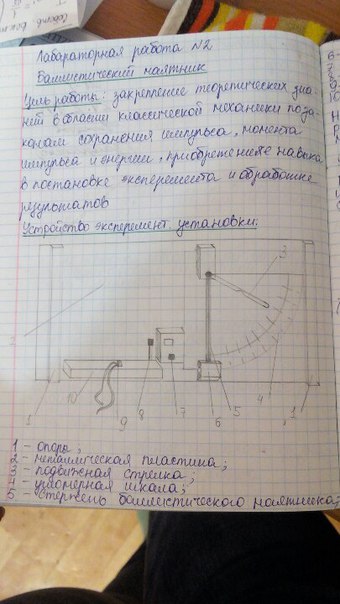 Лабараторная работа №2
Баллистический маятник
Цель работы: закрепление теоретических зна-
ний в области классической механики по за-
конам сохранения импульса, момента
импульса и энергии, приобретение навыка
в постановке эксперемента и обработке
результатов
Устройство эксперемент. установки:
3
2
1
10
9
8
7
6
5
4
1
1 - опоры;
2 - металлическая пластина;
3 - подвижная стрелка;
4 - угломерная шкала;
5 - стержень баллистического маятника;